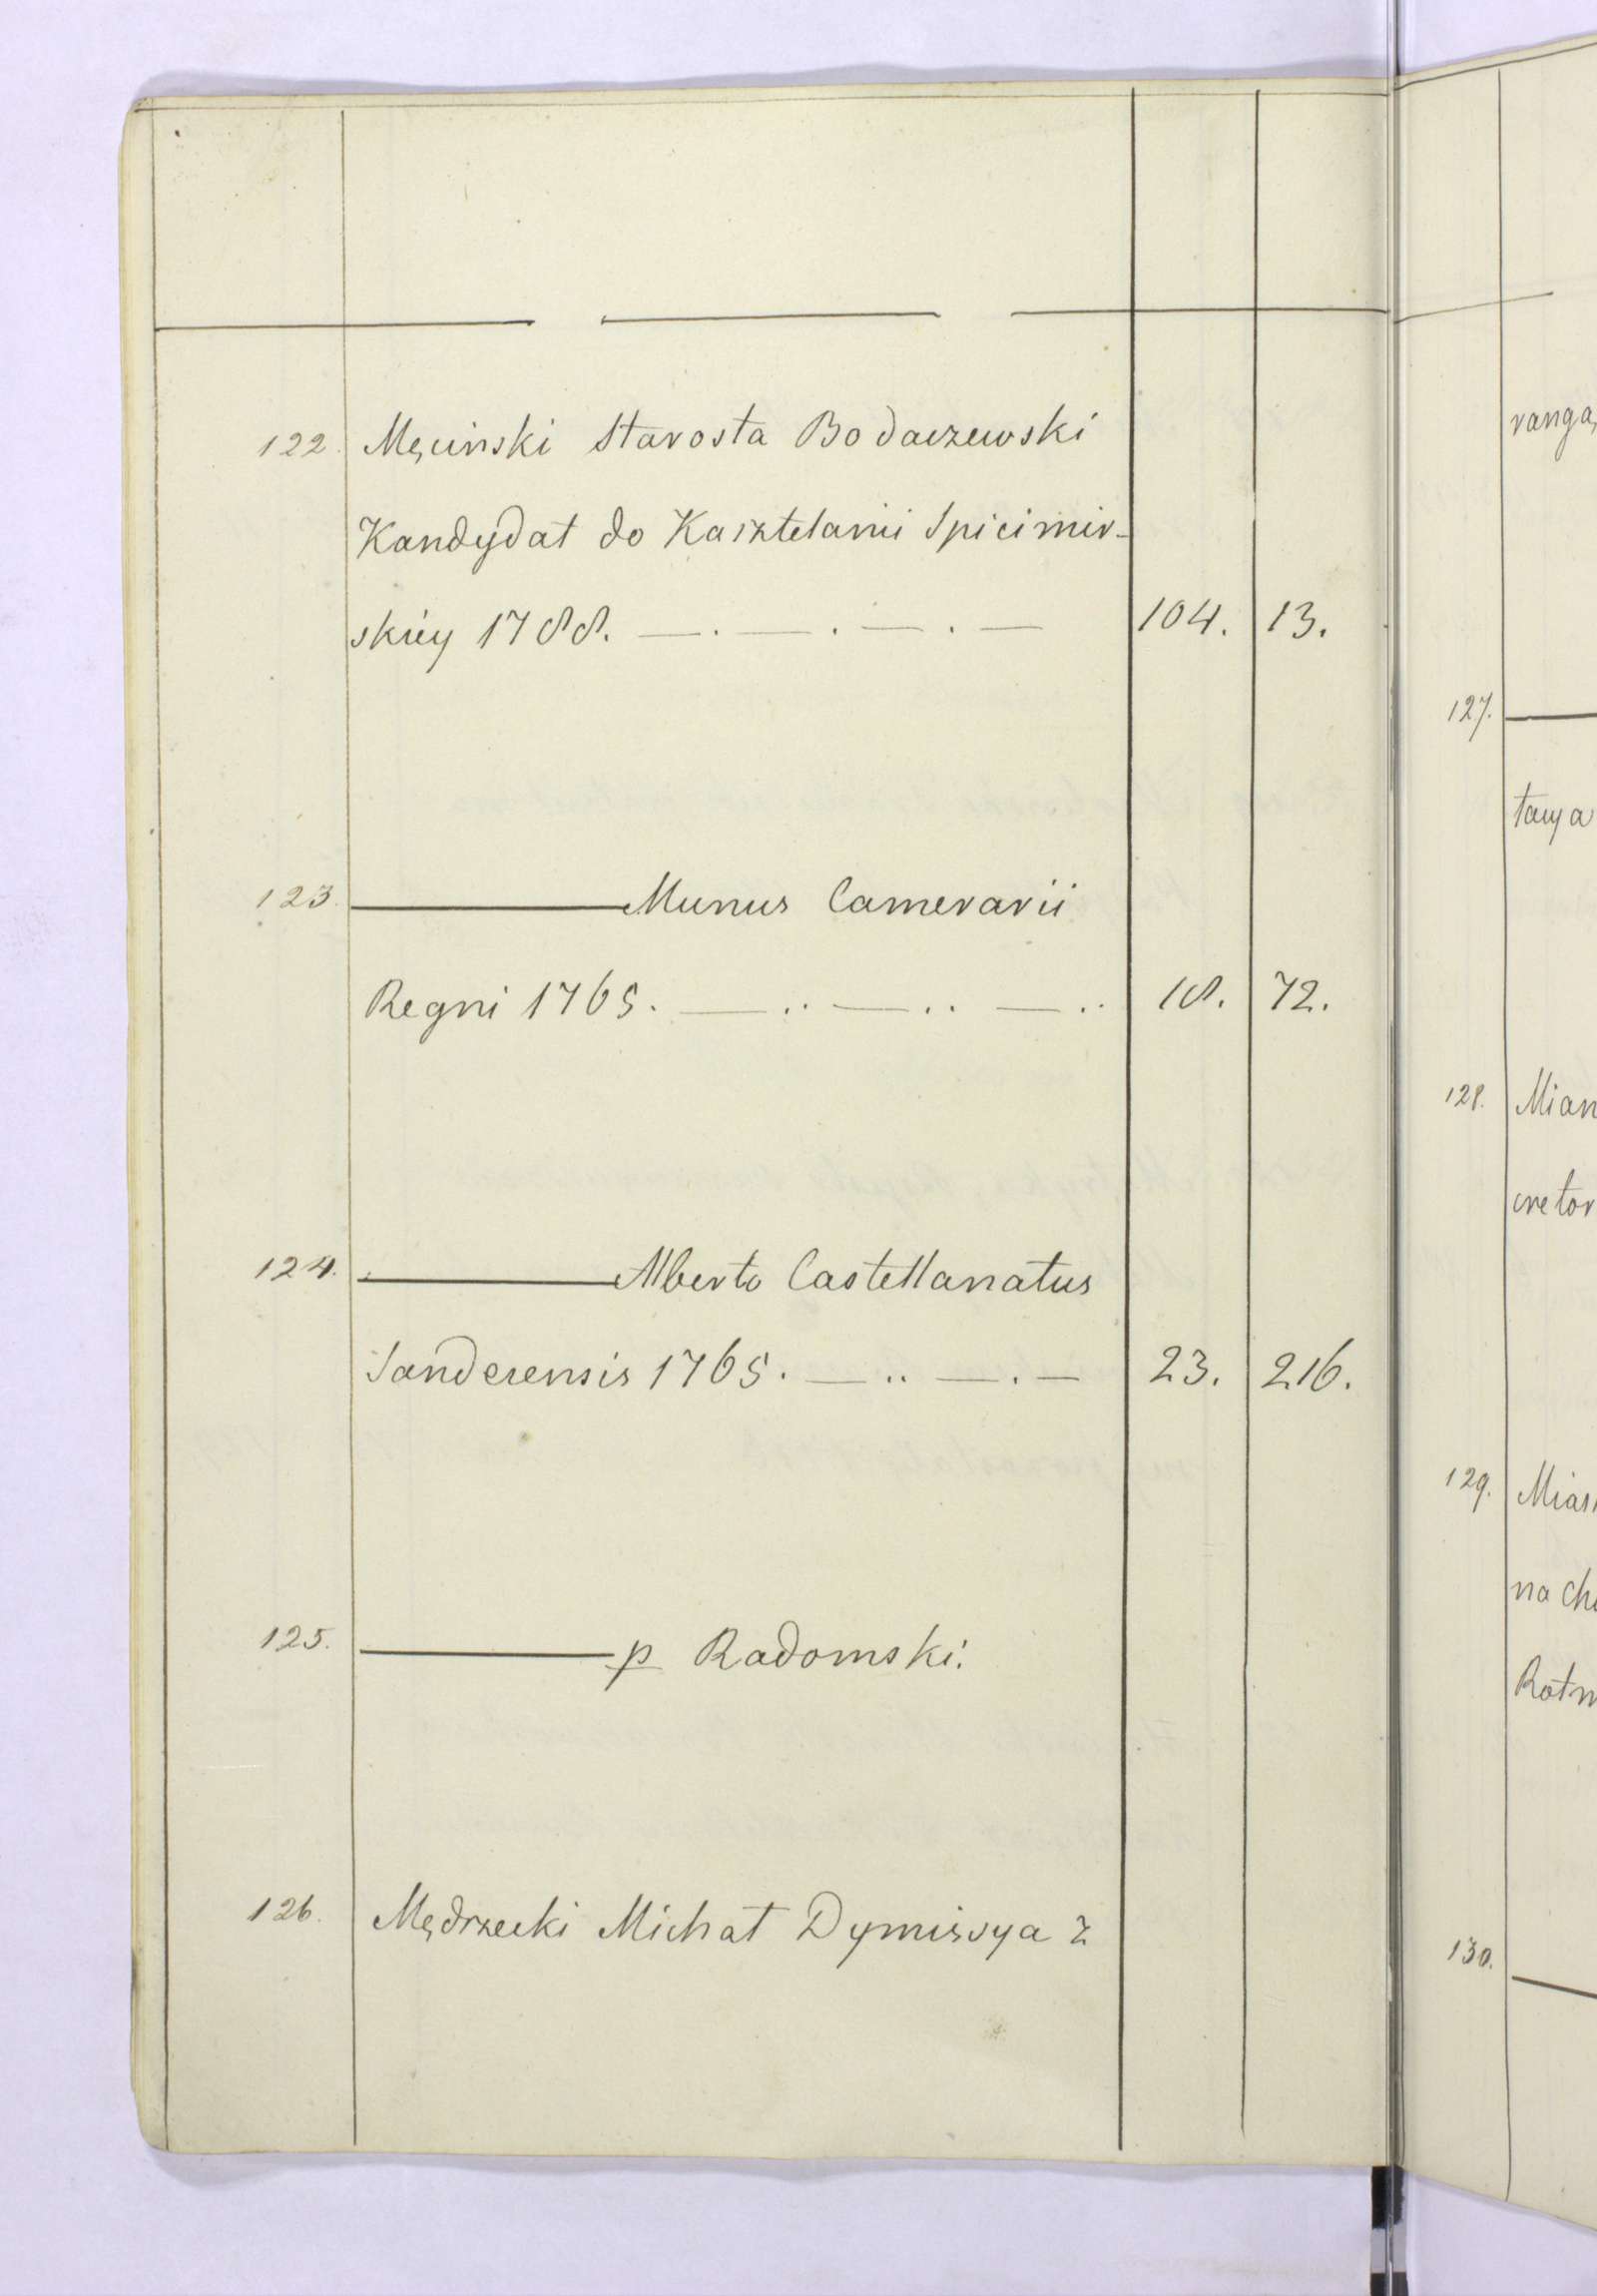 122. Męcinski Starosta Bodaczewski
Kandydat do Kasztelanii Spicimir-
skiey 1788. —. —. —. — 104. 13.
123. ——— Munus Camerarii
Regni 1765. — .. — .. — .. 18. 72.
124. ——— Alberto Castellanatus
Sandecensis 1765. — .. — . — 23. 216.
125. ——— p Radomski.
126. Mędrzecki Michał Dymissya z
ranga
127. ———
tacya
128. Mian
cretor
129. Mias
na Ch
Rotm
130. ———